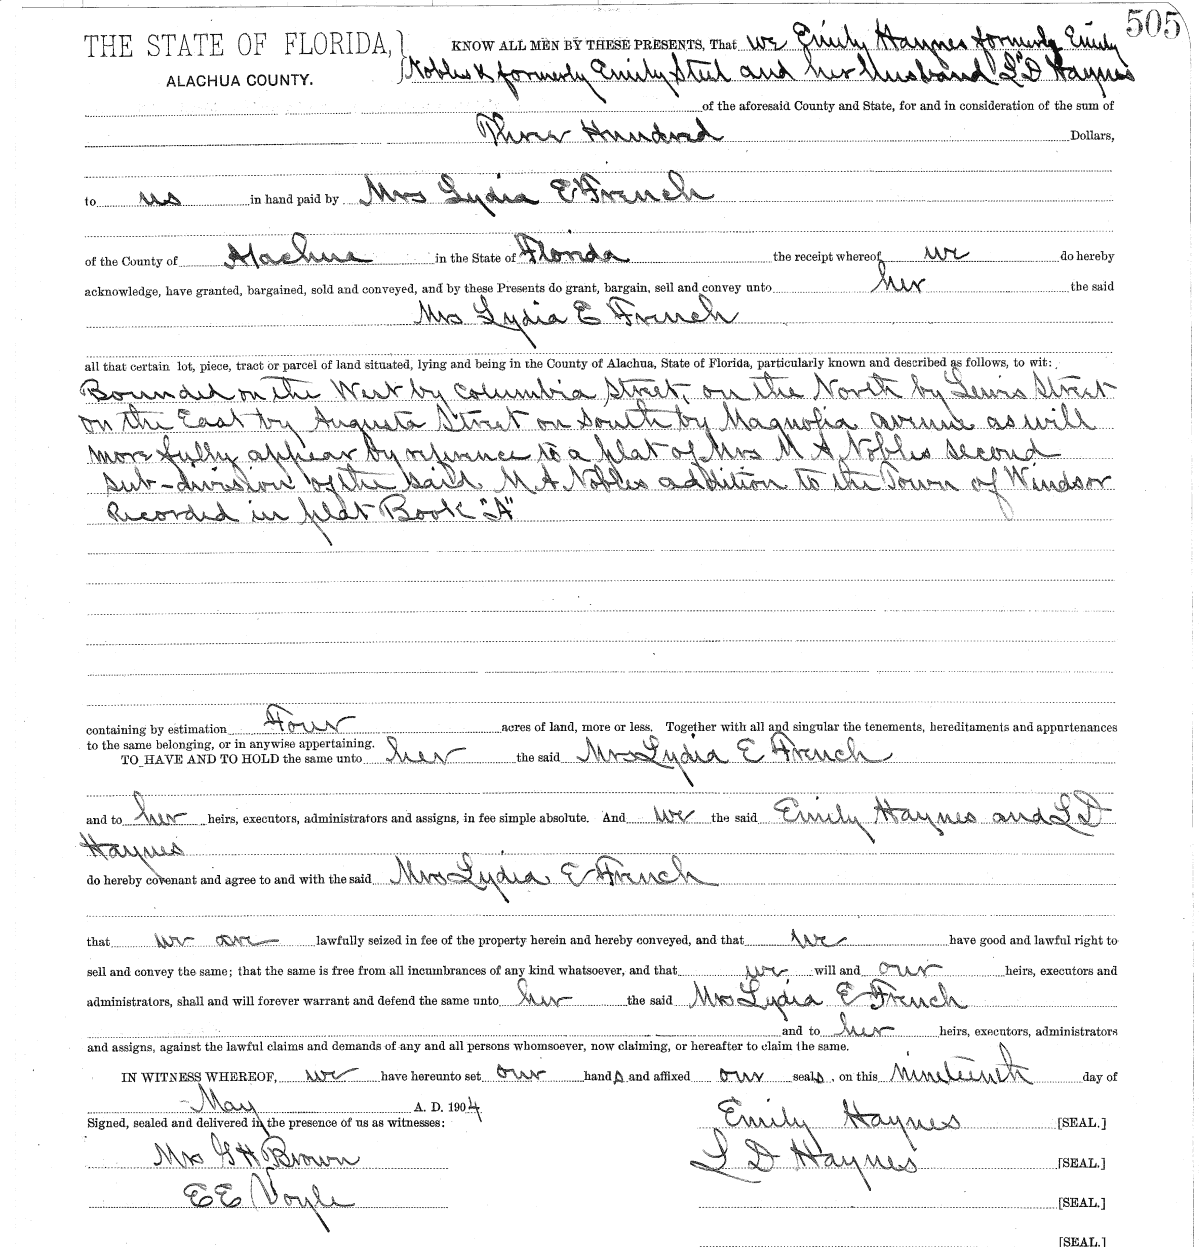 505
THE STATE OF FLORIDA, } KNOW ALL MEN BY THESE PRESENTS, That we Emily Haynes formerly Emily
ALACHUA COUNTY. Nobles & formerly Emily Steel and her husband L D Haynes
of the aforesaid County and State, for and in consideration of the sum of
Three Hundred Dollars,
to us in hand paid by Mrs Lydia E French
of the County of Alachua in the State of Florida the receipt whereof we do hereby
acknowledge, have granted, bargained, sold and conveyed, and by these Presents do grant, bargain, sell and convey unto her the said
Mrs Lydia E French
all that certain lot, piece, tract or parcel of land situated, lying and being in the County of Alachua, State of Florida, particularly known and described as follows, to wit:
Bounded on the West by Columbia Street, on the North by Lewis Street
on the East by Augusta Street on South by Magnolia avenue as will
more fully appear by reference to a plat of Mrs M A Nobles second
sub-division of the said M A Nobles addition to the Town of Windsor
Recorded in plat Book "A"
containing by estimation Four acres of land, more or less. Together with all and singular the tenements, hereditaments and appurtenances
to the same belonging, or in anywise appertaining.
TO HAVE AND TO HOLD the same unto her the said Mrs Lydia E French
and to her heirs, executors, administrators and assigns, in fee simple absolute. And we the said Emily Haynes and L D
Haynes
do hereby covenant and agree to and with the said Mrs Lydia E French
that we are lawfully seized in fee of the property herein and hereby conveyed, and that we have good and lawful right to
sell and convey the same; that the same is free from all incumbrances of any kind whatsoever, and that we will and our heirs, executors and
administrators, shall and will forever warrant and defend the same unto her the said Mrs Lydia E French
and to her heirs, executors, administrators
and assigns, against the lawful claims and demands of any and all persons whomsoever, now claiming, or hereafter to claim the same.
IN WITNESS WHEREOF, we have hereunto set our hands and affixed our seals, on this nineteenth day of
May A. D. 1904
Signed, sealed and delivered in the presence of us as witnesses: Emily Haynes [SEAL.]
Mrs G H Brown L D Haynes [SEAL.]
E E Voyle [SEAL.]
[SEAL.]